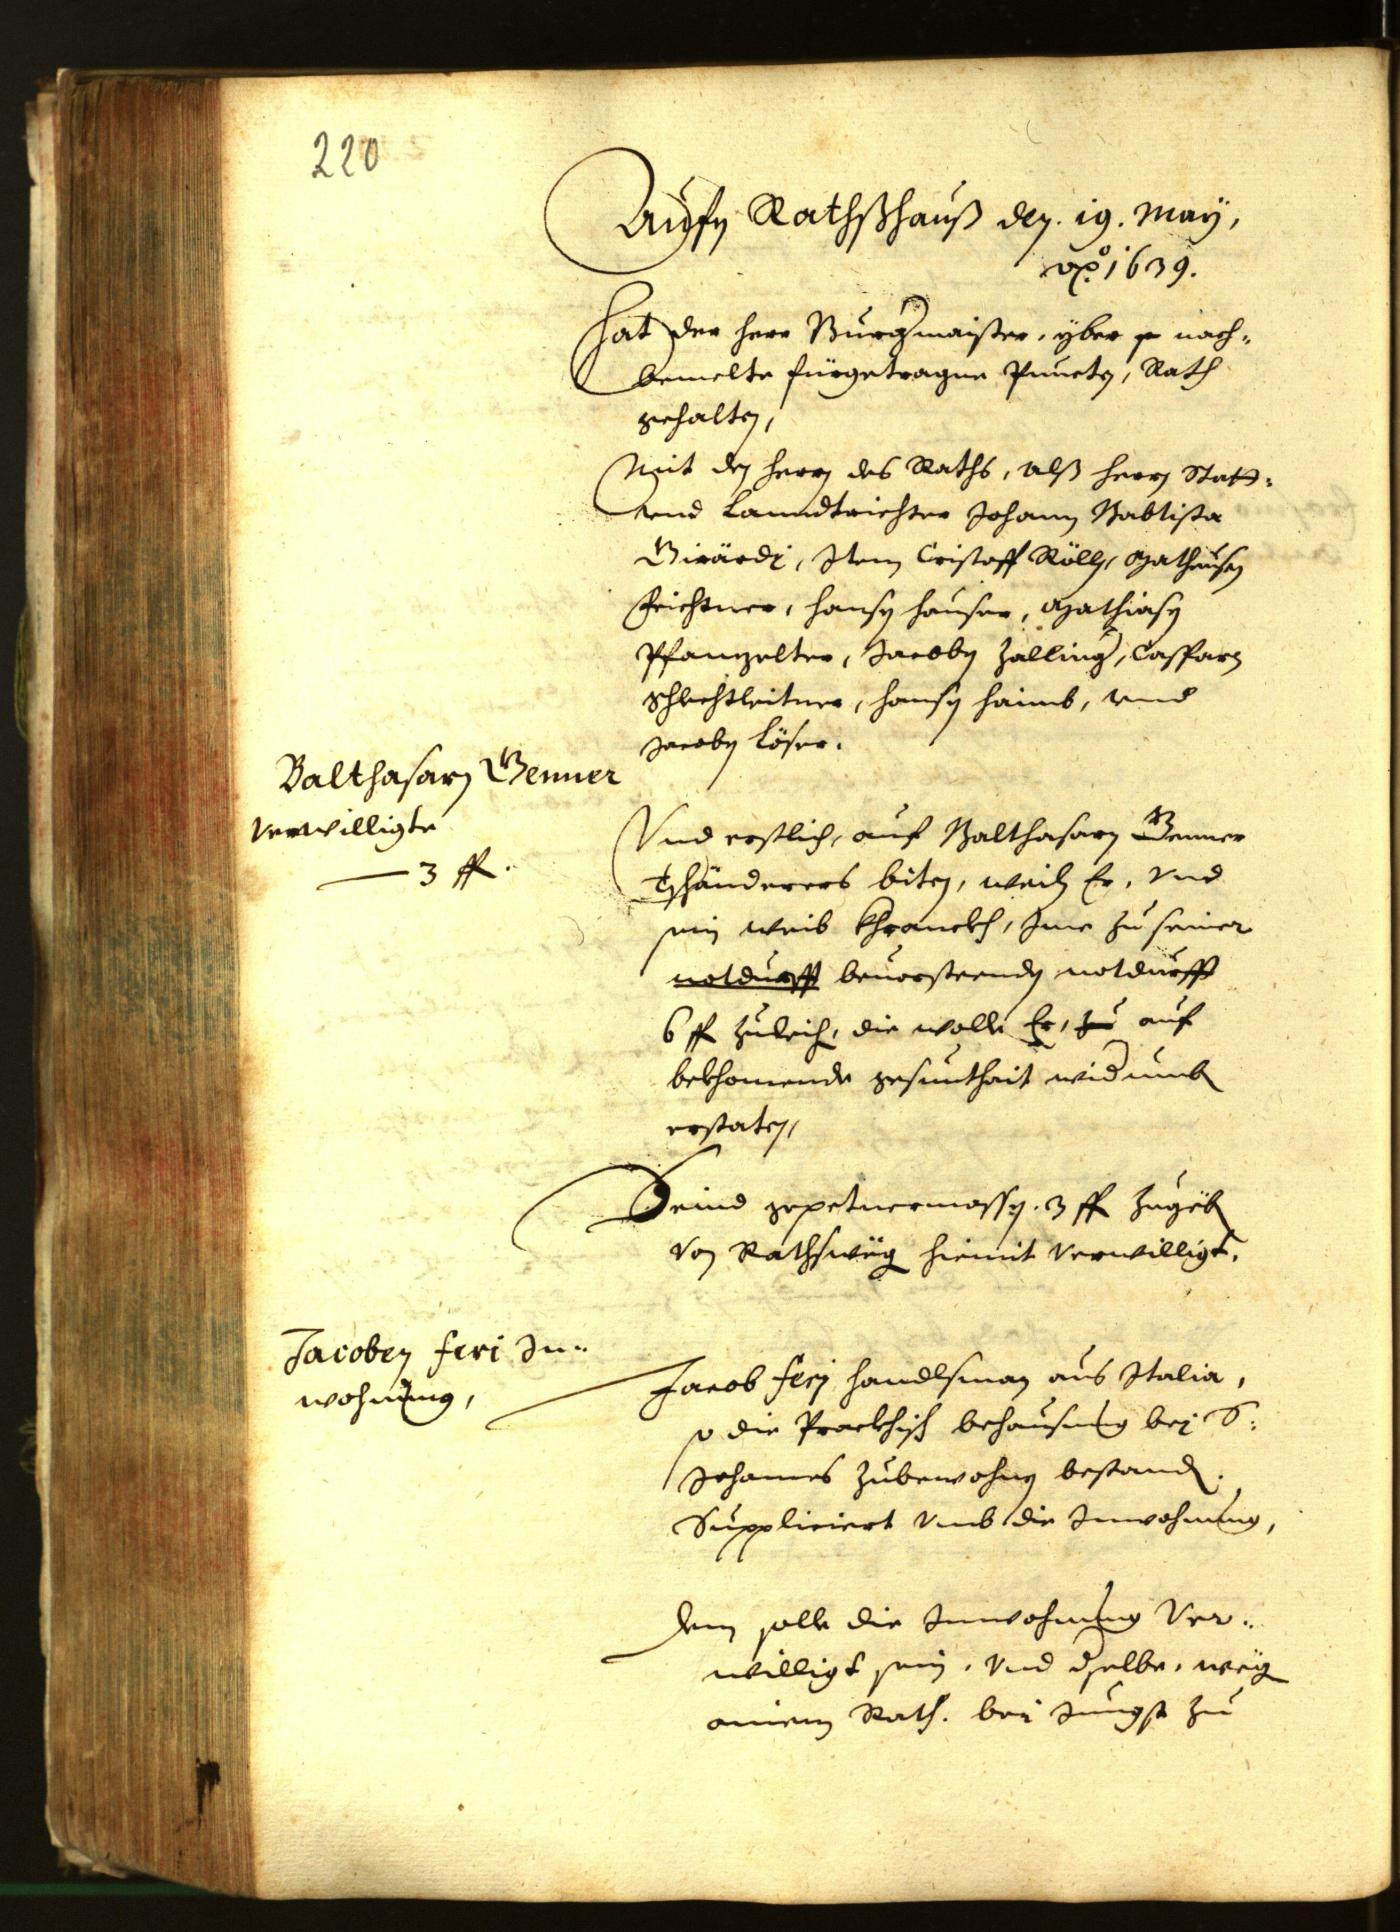 220
Aufm Rathßhauß den. 19. May,
Aõ. 1639.
Hat der Herr Burgermaister, yber nach-
bemelte fürgetragne Puncten, Rath
gehalten,
Mit den Herrn des Raths, alß Herrn Statt-
vnd Lanndtrichter Johann Babtista
Girärdi, Item Cristoff Röll, Matheusen
Feichtner, Hansen Hauser, Mathiasen
Pfanzelter, Jacoben Zalling, Casparn
Schlechtleitner, Hansen Haimb, vnd
Jacoben Löser.
Balthasarn Genner
verwilligte
3 ff.
Vnd erstlich, auf Balthasarn Genner
Tschänderers biten, weiln Er, vnd
sein weib khranckh, Ime zu seiner
notdurfft beuorsteenden notdurfft
6 ff zuleichen, die wolle Er, zu auf
bekhomende gesunthait widerumb
erstaten,
Seind gepetnermassen. 3 ff zugeben
von Rathswegen hiemit verwilligt.
Jacoben Feri In-
wohnung,
Jacob Feri Handlsman aus Italia,
so die Prackhisch behausung bej S:
Johannes zubewohnen bestanden.
Suppliciert vmb die Inwohnung,
Dem solle die Inwohnung ver-
willigt sein, vnd dselbe, wegen
ainem Rath. bei Jungst zu